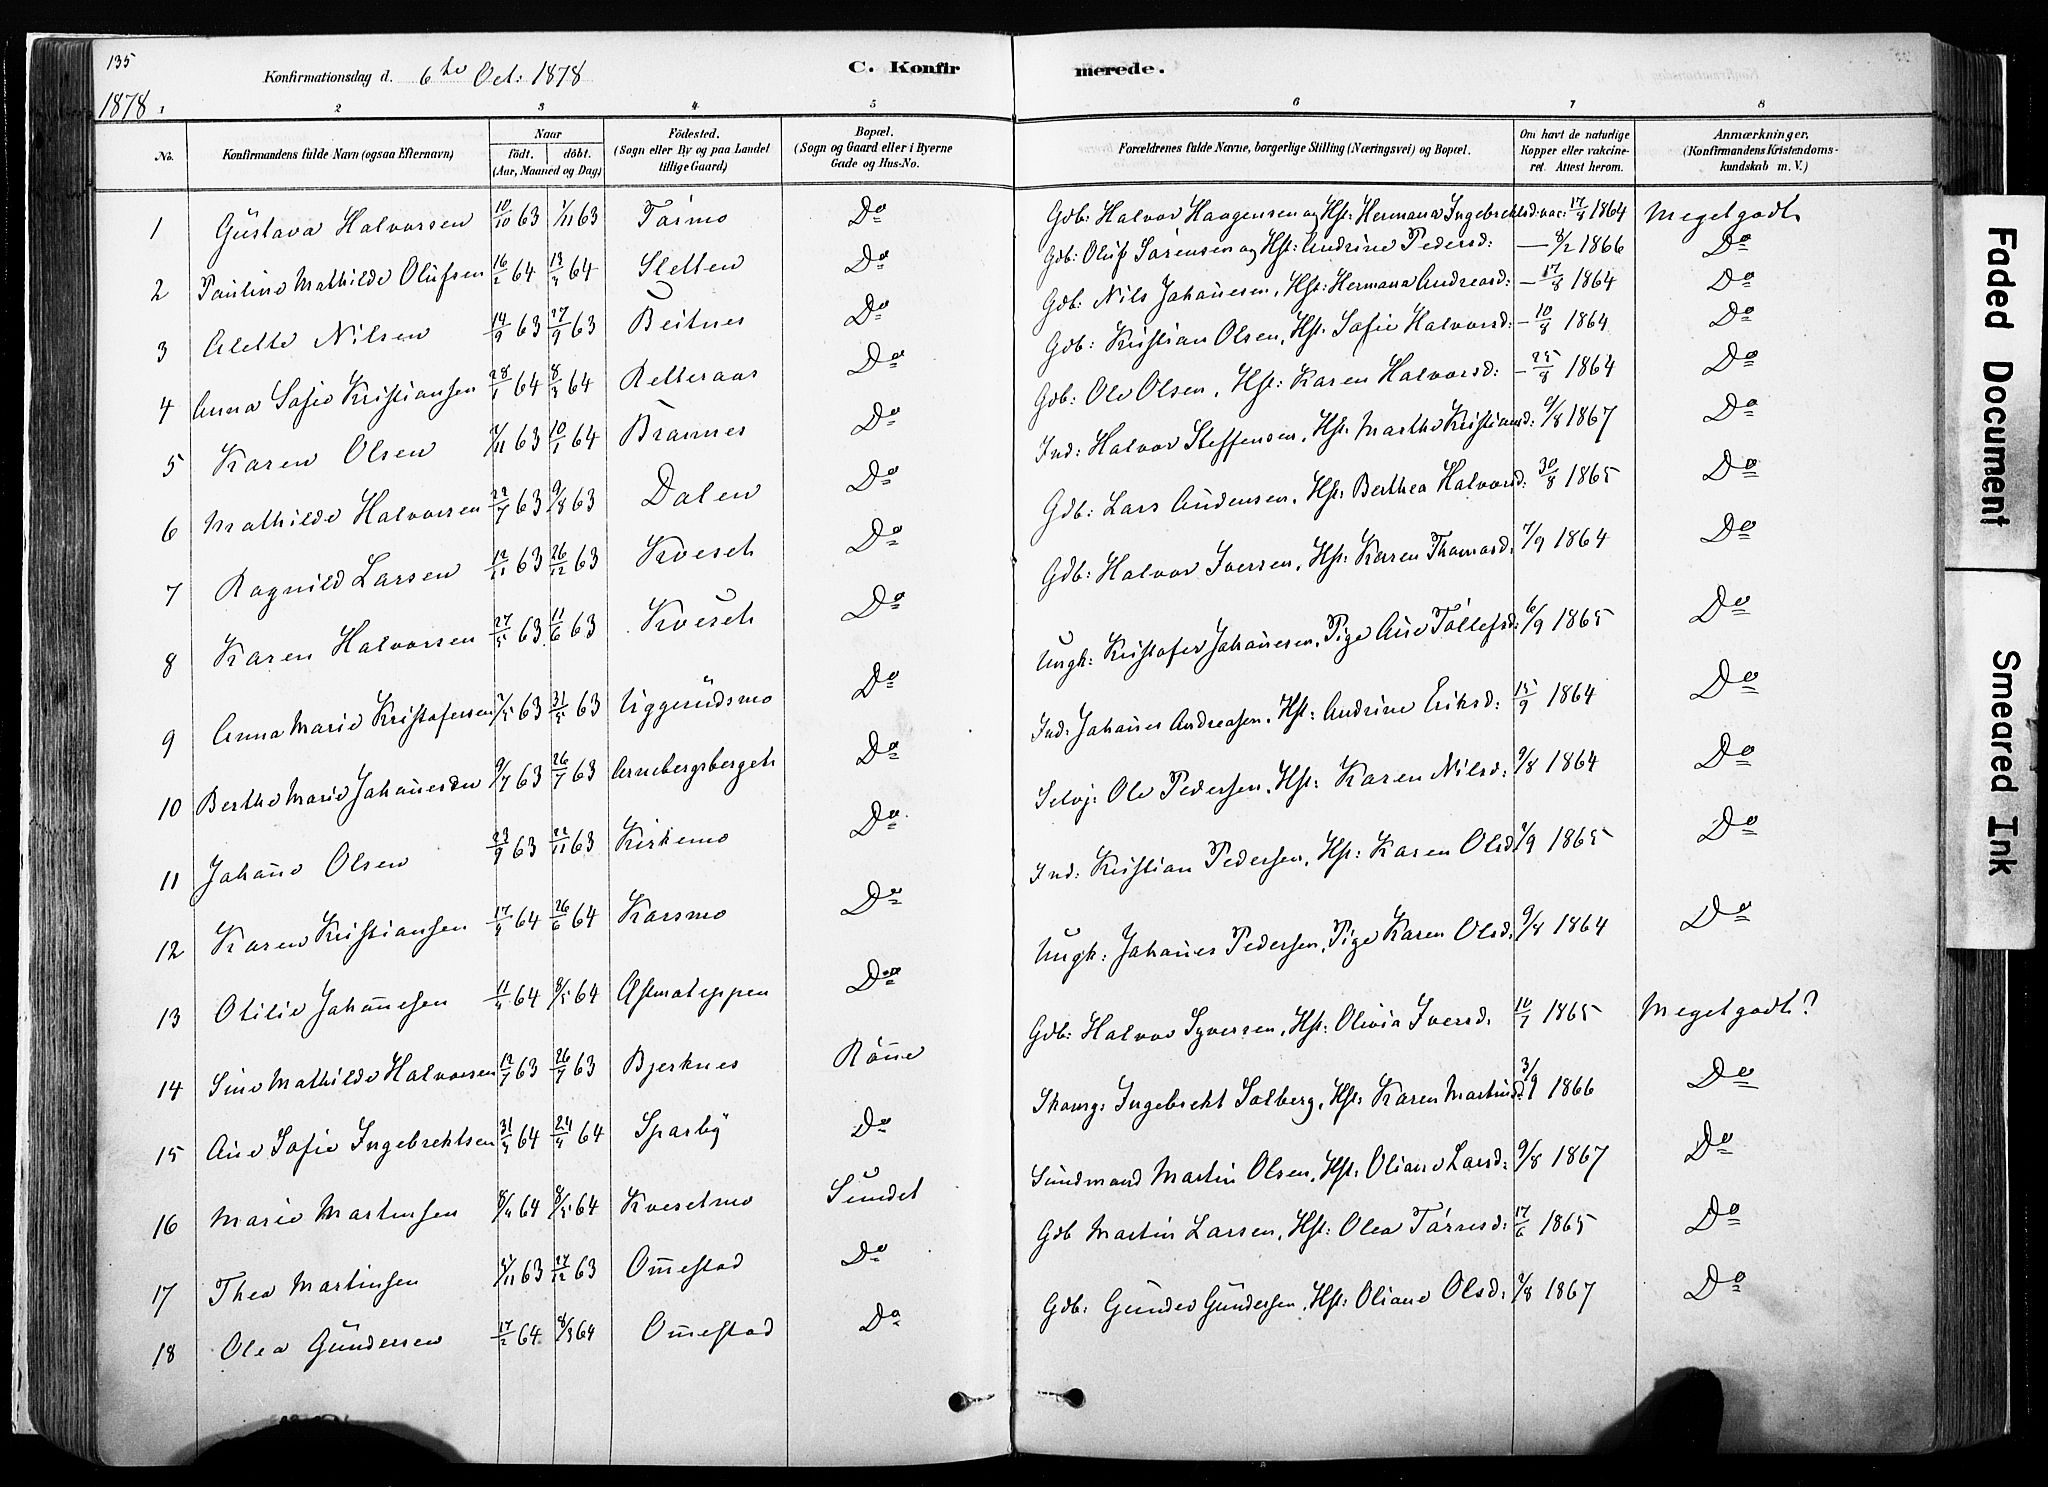 135
Konfirmationsdag d. 6te Oct: 1878 C. Konfirmerede.
1878.
2 3 4 5 6 7 8
No. Konfirmandens fulde Navn (ogsaa Efternavn) Naar födt. döbt. (Aar, Maaned og Dag) Födested. (Sogn eller By og paa Landet tillige Gaard) Bopæl. (Sogn og Gaard eller i Byerne Gade og Hus-No. Forældrenes fulde Navne, borgerlige Stilling (Næringsvei) og Bopæl. Om havt de naturlige Kopper eller vakcineret. Attest herom. Anmærkninger. (Konfirmandens Kristendomskundskab m. V.)
1 Gustava Halvorsen 10/10 63 1/11 63 Do Gdb: Halvor Haagensen og Hst: Hermana Ingebrektsd: vac: 17/8 1864 Meget godt
2 Pauline Mathilde Olufsen 16/2 64 13/3 64 Sletten Do Gdb: Oluf Sörensen og Hst: Andrine Pedersd: — 8/2 1866 Do
3 Alette Nilsen 14/9 63 27/9 63 Beitnes Do Gdb: Nils Johanesen, Hst: Hermana Andreasd: — 17/8 1864 Do
4 Anna Sofie Kristiansen 28/1 64 8/3 64 Retteraas Do Gdb: Kristian Olsen, Hst: Sofie Halvorsd: — 10/8 1864 Do
5 Karen Olsen 7/11 63 10/1 64 Do Gdb: Ole Olsen, Hst: Karen Halvorsd: — 25/8 1864 Do
6 Mathilde Halvorsen 22/7 63 9/8 63 Dalen Do Ind: Halvor Steffensen, Hst: Marthe Kristiansd: 9/8 1867 Do
7 Ragnild Larsen 12/11 63 26/12 63 Kveset Do Gdb: Lars Audensen, Hst: Berthea Halvorsd: 30/8 1865 Do
8 Karen Halvorsen 27/5 63 11/6 63 Kveset Do Gdb: Halvor Iversen, Hst: Karen Thomasd: 7/9 1864 Do
9 Anna Marie Kristofersen 7/5 63 31/5 63 Do Ungk: Kristofer Johanesen, Pige Ane Tollefsd: 6/9 1865 Do
10 Berthe Marie Johanesen 9/7 63 26/7 63 Arnebergsberget Do Ind: Johanes Andreasen, Hst: Andrine Eriksd: 15/9 1864 Do
11 Johane Olsen 23/9 63 22/11 63 Kirkemo Do Selvj: Ole Pedersen, Hst: Karen Nilsd: 9/8 1864 Do
12 Karen Kristiansen 17/4 64 26/6 64 Karsmo Do Ind: Kristian Pedersen, Hst: Karen Olsd: 7/9 1865 Do
13 Otilie Johannesen 11/4 64 8/5 64 Do Ungk: Johanes Pedersen, Pige Karen Olsd: 9/8 1864 Do
14 Sine Mathilde Halvorsen 12/7 63 26/7 63 Bjerknes Rönne Gdb: Halvor Syversen, Hst: Olivia Iversd. 10/7 1865 Meget godt?
15 Ane Sofie Ingebrektsen 31/3 64 24/4 64 Sparby Do Skomg: Ingebrekt Solberg, Hst: Karen Martinsd: 3/9 1866 Do
16 Marie Martinsen 8/4 64 8/5 64 Kvesetmo Sundet Sundmand Martin Olsen, Hst: Oliane Larsd: 9/8 1867 Do
17 Thea Martinsen 5/11 63 27/12 63 Ommestad Do Gdb Martin Larsen, Hst: Olea Törresd: 17/6 1865 Do
18 Olea Gundersen 17/2 64 8/3 64 Ommestad Do Gdb: Gunder Gundersen, Hst: Oliane Olsd: 9/8 1867 Do
Faded Document
Smeared Ink